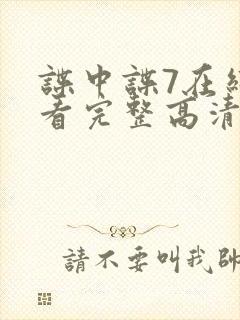 諜中諜7在
看完整高清
請不要叫我